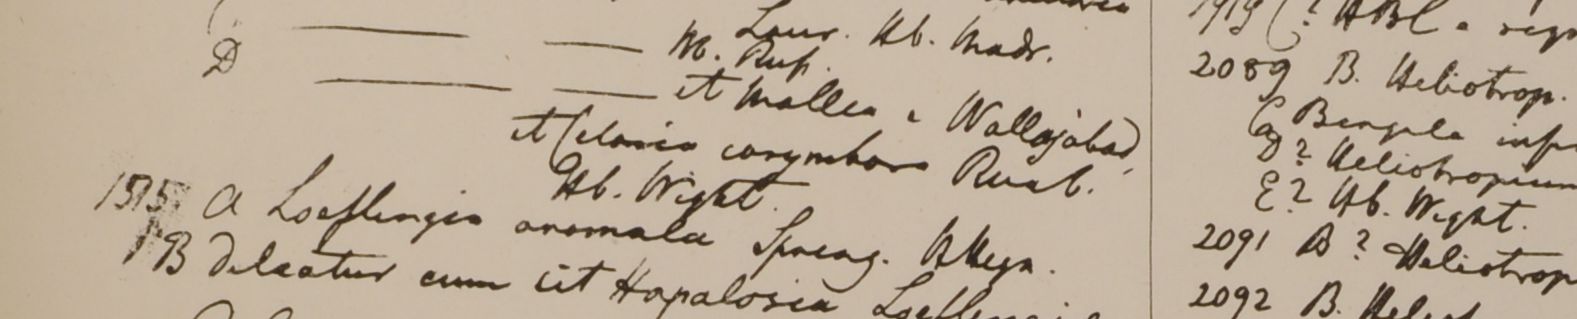 Laur. Hb. Madr.
D — — M. Ruf.
— — et Mallea a Wallajabad
et Celosia corymbosa Roxb.
Hb. Wight.
1515 A Loeflingia anomala Spreng. HHeyn.
B deleatur cum sit Hapalosia Loeflingia
1919 ? HBC a
2089 B. Heliotrop.
Bengala
? Heliotropium
E? Hb. Wight.
2091 B? Heliotrop
2092 B. Heliot